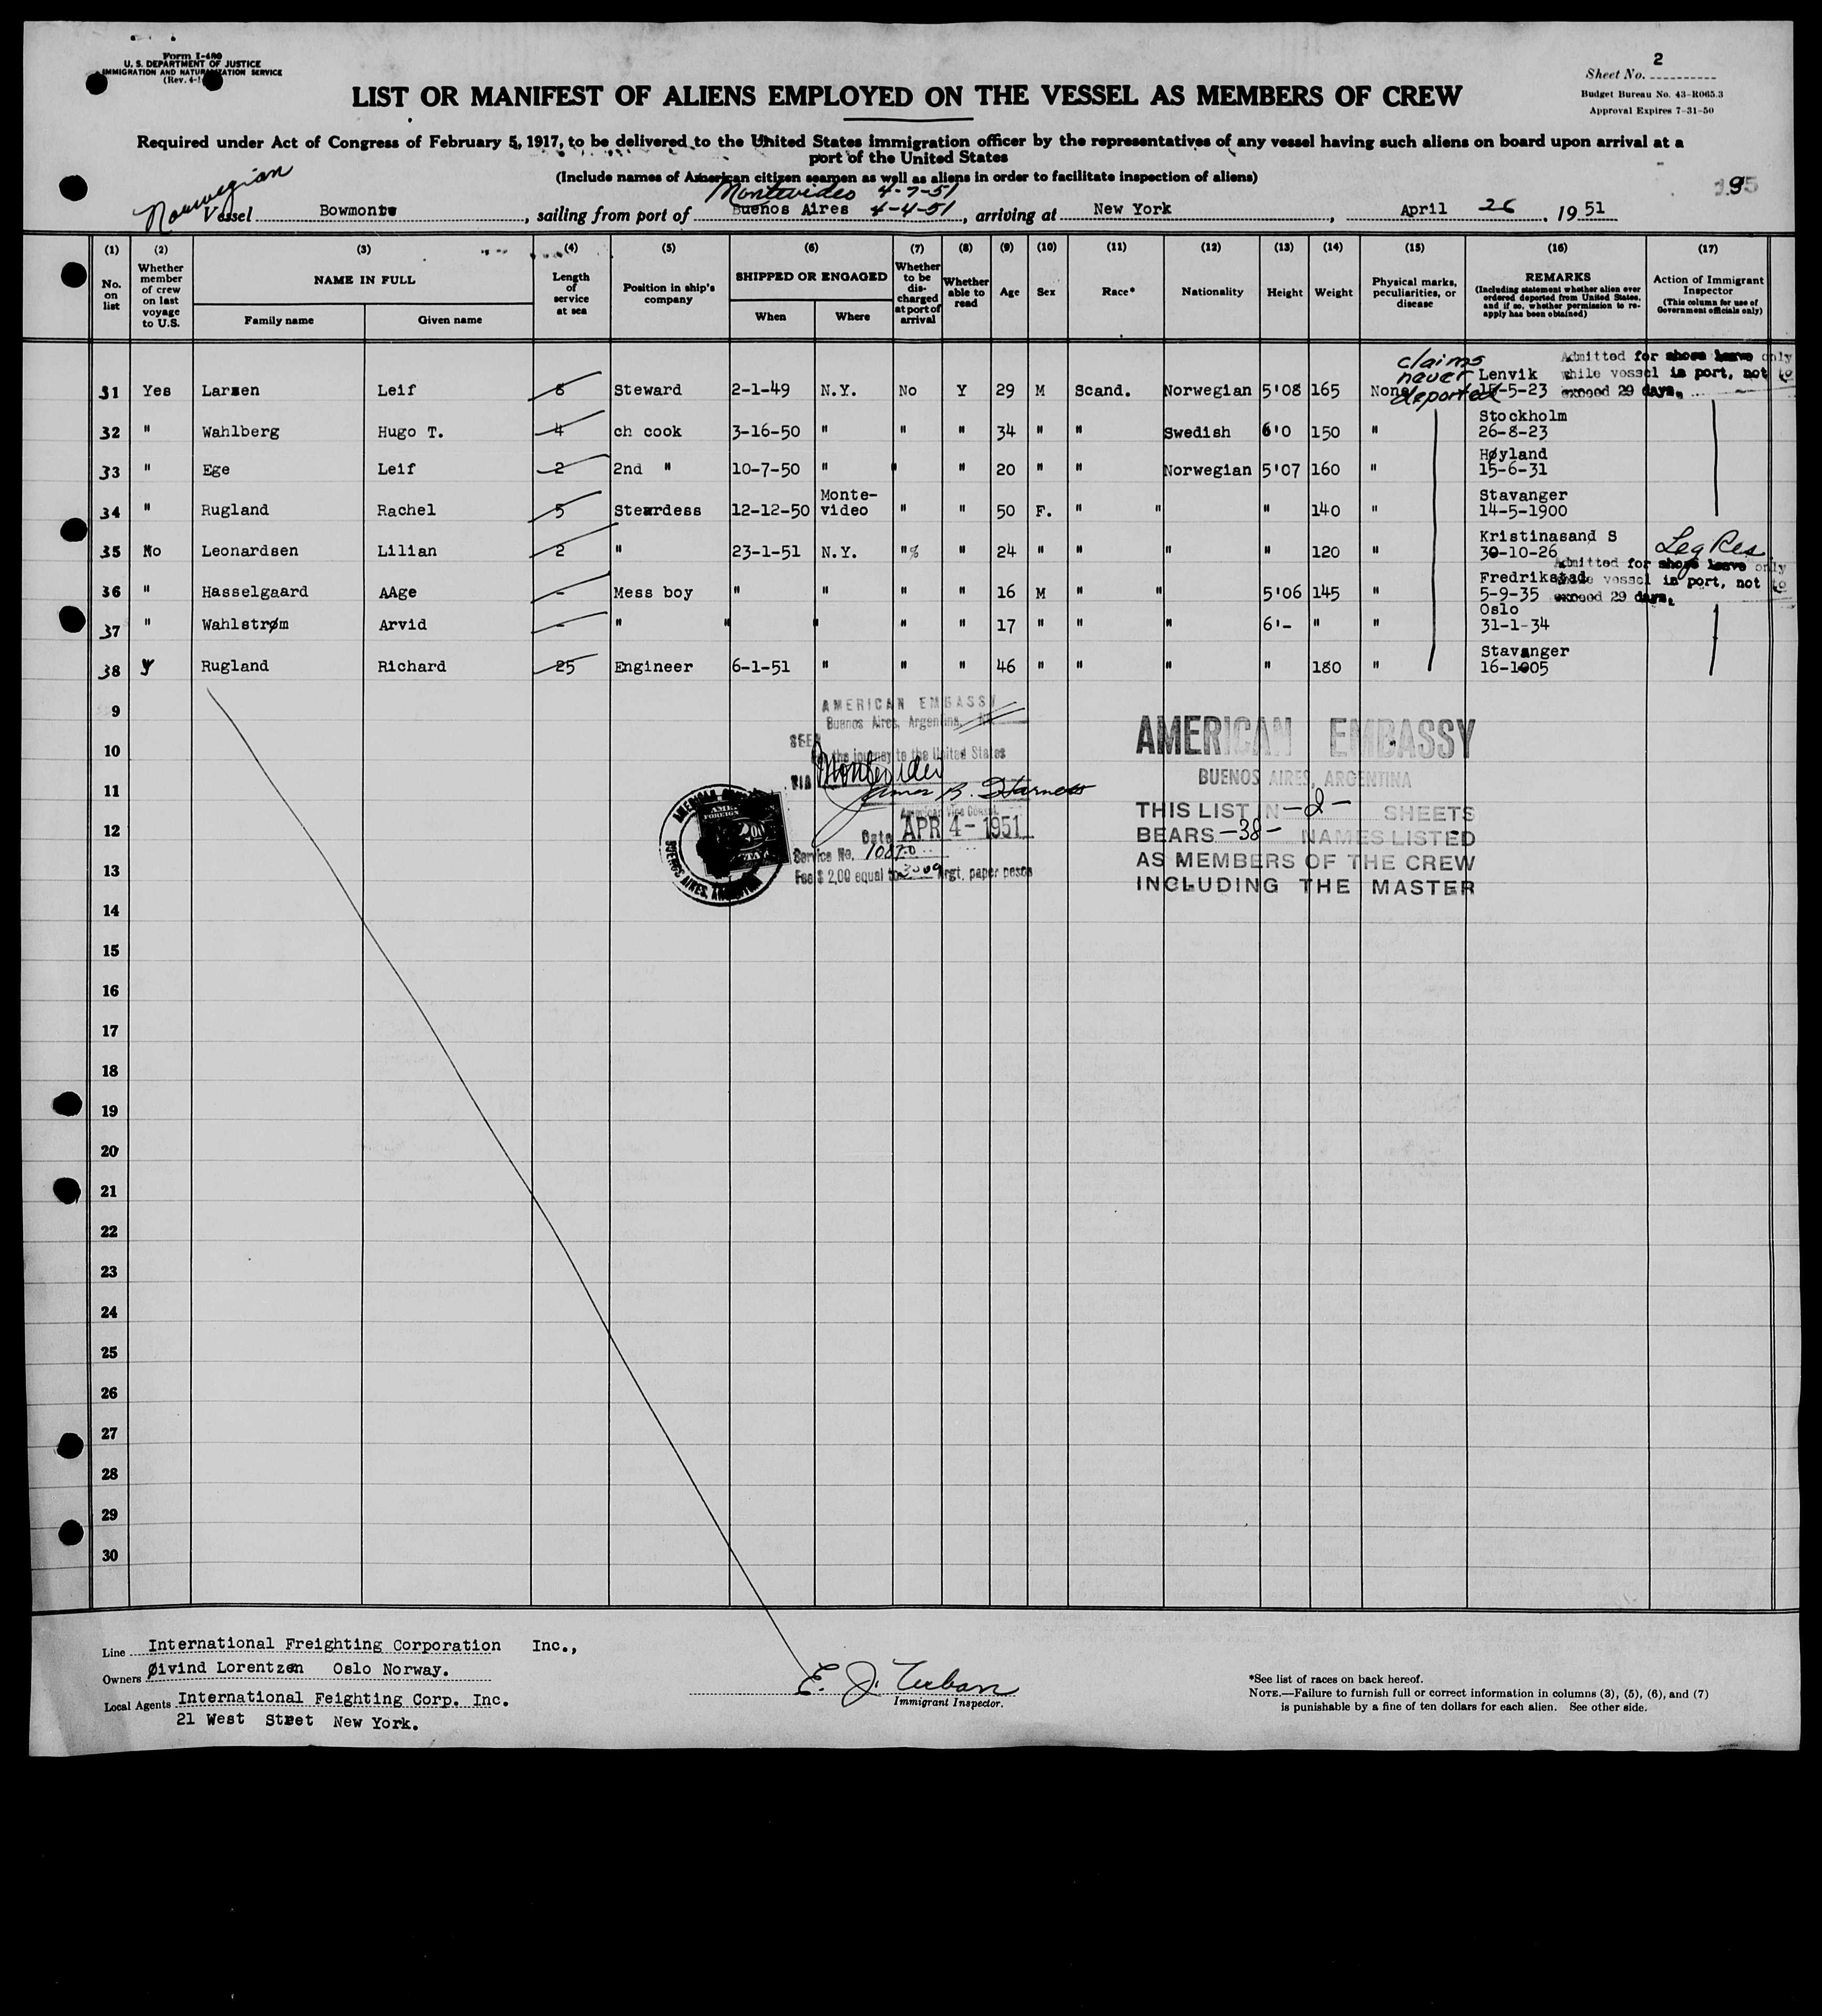 Form I-480
U. S. DEPARTMENT OF JUSTICE
IMMIGRATION AND NATURALIZATION SERVICE
(Rev. 4-1
2
Sheet No.
Budget Bureau No. 43-R065.3
Approval Expires 7-31-50
LIST OR MANIFEST OF ALIENS EMPLOYED ON THE VESSEL AS MEMBERS OF CREW
Required under Act of Congress of February 5, 1917, to be delivered to the United States immigration officer by the representatives of any vessel having such aliens on board upon arrival at a
port of the United States
(Include names of American citizen seamen as well as aliens in order to facilitate inspection of aliens)
195
Norwegian
Montevideo 4-7-51
Vessel Bowmonte, sailing from port of Buenos Aires 4-4-51, arriving at New York, April 26, 1951
(1) (2) (3) (4) (5) (6) (7) (8) (9) (10) (11) (12) (13) (14) (15) (16) (17)
No. on list
Whether member of crew on last voyage to U.S.
NAME IN FULL
Family name
Given name
Length of service at sea
Position in ship's company
SHIPPED OR ENGAGED
When
Where
Whether to be discharged at port of arrival
Whether able to read
Age
Sex
Race*
Nationality
Height
Weight
Physical marks, peculiarities, or disease
REMARKS
(Including statement whether alien ever ordered deported from United States, and if so, whether permission to reapply has been obtained)
Action of Immigrant Inspector
(This column for use of Government officials only)
claims never deported
Admitted for shore leave only
while vessel is port, not to
exceed 29 days.
31 Yes Larsen Leif 8 Steward 2-1-49 N.Y. No Y 29 M Scand. Norwegian 5'08 165 None Lenvik 15-5-23
32 " Wahlberg Hugo T. 4 ch cook 3-16-50 " " " 34 " " Swedish 6'0 150 " Stockholm 26-8-23
33 " Ege Leif 2 2nd " 10-7-50 " " " 20 " " Norwegian 5'07 160 " Høyland 15-6-31
34 " Rugland Rachel 5 Steardess 12-12-50 Monte-video " " 50 F. " " " 140 " Stavanger 14-5-1900
35 No Leonardsen Lilian 2 " 23-1-51 N.Y. " " 24 " " " " 120 " Kristinasand S 30-10-26 Leg Res
Admitted for shore leave only
while vessel in port, not to
exceed 29 days.
36 " Hasselgaard AAge - Mess boy " " " " 16 M " " 5'06 145 " Fredrikstad 5-9-35
37 " Wahlstrøm Arvid - " " " " " 17 " " " 6'- " " Oslo 31-1-34
38 y Rugland Richard 25 Engineer 6-1-51 " " " 46 " " " " 180 " Stavanger 16-1905
9
10
11
12
13
14
15
16
17
18
19
20
21
22
23
24
25
26
27
28
29
30
AMERICAN EMBASSY
Buenos Aires, Argentina,
SEEN
the journey to the United States
VIA Montevideo
James B. Harness
American Vice Consul
Date APR 4-1951
Service No. 10870
Fee $ 2,00 equal to Argt. paper pesos
AMERICAN
FOREIGN
BUENOS AIRES, ARGENTINA
AMERICAN EMBASSY
BUENOS AIRES, ARGENTINA
THIS LIST IN -2- SHEETS
BEARS -38- NAMES LISTED
AS MEMBERS OF THE CREW
INCLUDING THE MASTER
Line International Freighting Corporation Inc.,
Owners Øivind Lorentzen Oslo Norway.
Local Agents International Feighting Corp. Inc.
21 West Street New York.
E. J. Urban
Immigrant Inspector.
*See list of races on back hereof.
NOTE.—Failure to furnish full or correct information in columns (3), (5), (6), and (7)
is punishable by a fine of ten dollars for each alien. See other side.